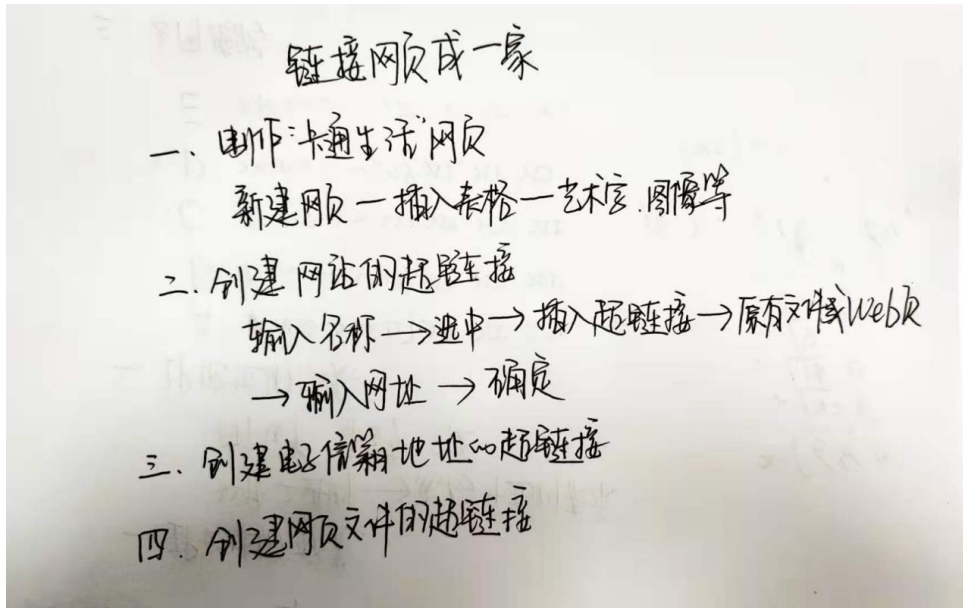 链接网页成一家
一、制作“卡通生活”网页
新建网页—插入表格—艺术字.图像等
二、创建网站的超链接
输入名称→选中→插入超链接→原有文件或Web页
→输入网址→确定
三、创建电子信箱地址的超链接
四、创建网页文件的超链接